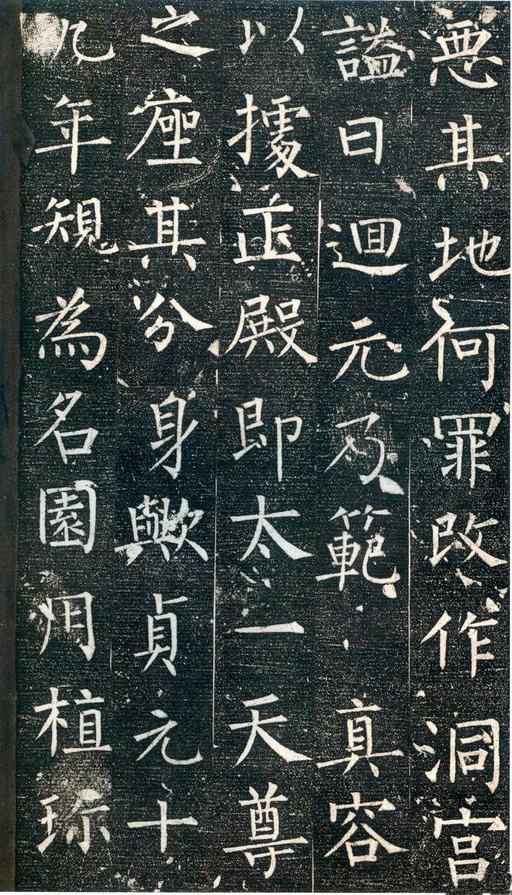 惡其地何罪改作洞宮
謚曰迴元乃範真容
以據正殿即太一天尊
之座其分身歟貞元十
九年規為名園用植珍